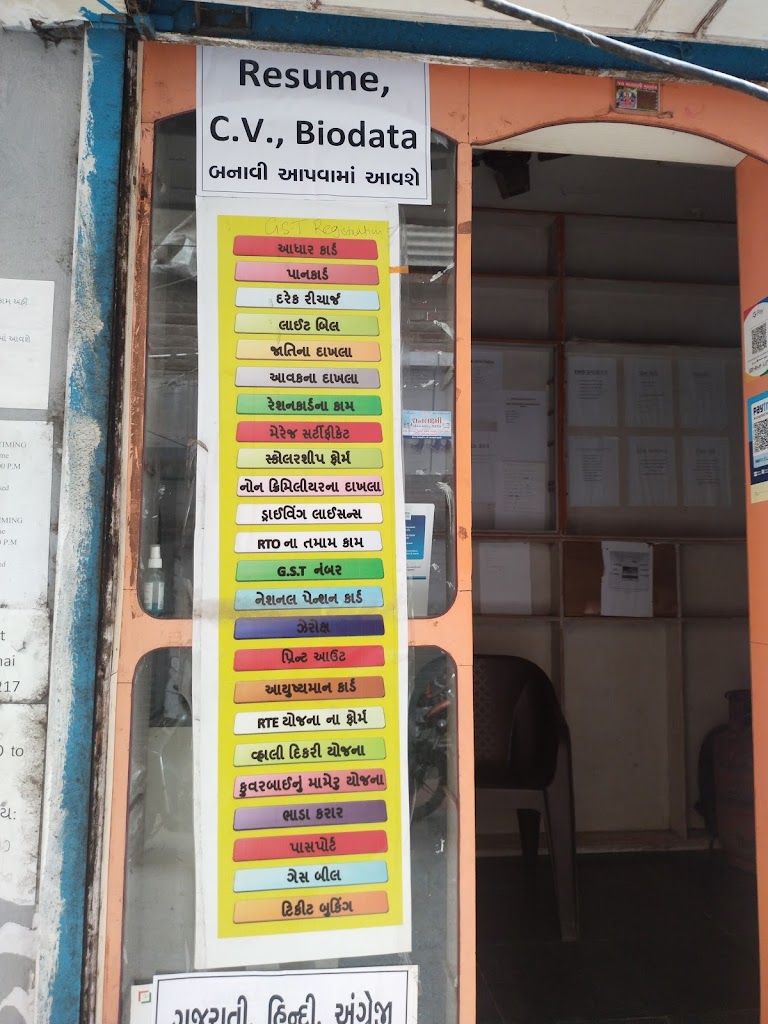 Resume,
C.V., Biodata
બનાવી આપવામાં આવશે
GST Registration
આધાર કાર્ડ
પાનકાર્ડ
દરેક રીચાર્જ
લાઈટ બિલ
જાતિના દાખલા
આવકના દાખલા
રેશનકાર્ડના કામ
મેરેજ સર્ટીફીકેટ
સ્કોલરશીપ ફોર્મ
નોન ક્રિમિલીયરના દાખલા
ડ્રાઈવિંગ લાઈસન્સ
RTO ના તમામ કામ
G.S.T નંબર
નેશનલ પેન્શન કાર્ડ
ઝેરોક્ષ
પ્રિન્ટ આઉટ
આયુષ્યમાન કાર્ડ
RTE યોજના ના ફોર્મ
વ્હાલી દિકરી યોજના
કુવરબાઈનું મામેરુ યોજના
ભાડા કરાર
પાસપોર્ટ
ગેસ બીલ
ટિકીટ બુકિંગ
ગુજરાતી, હિન્દી, અંગ્રેજી
TIMING
P.M
TIMING
P.M
217
to